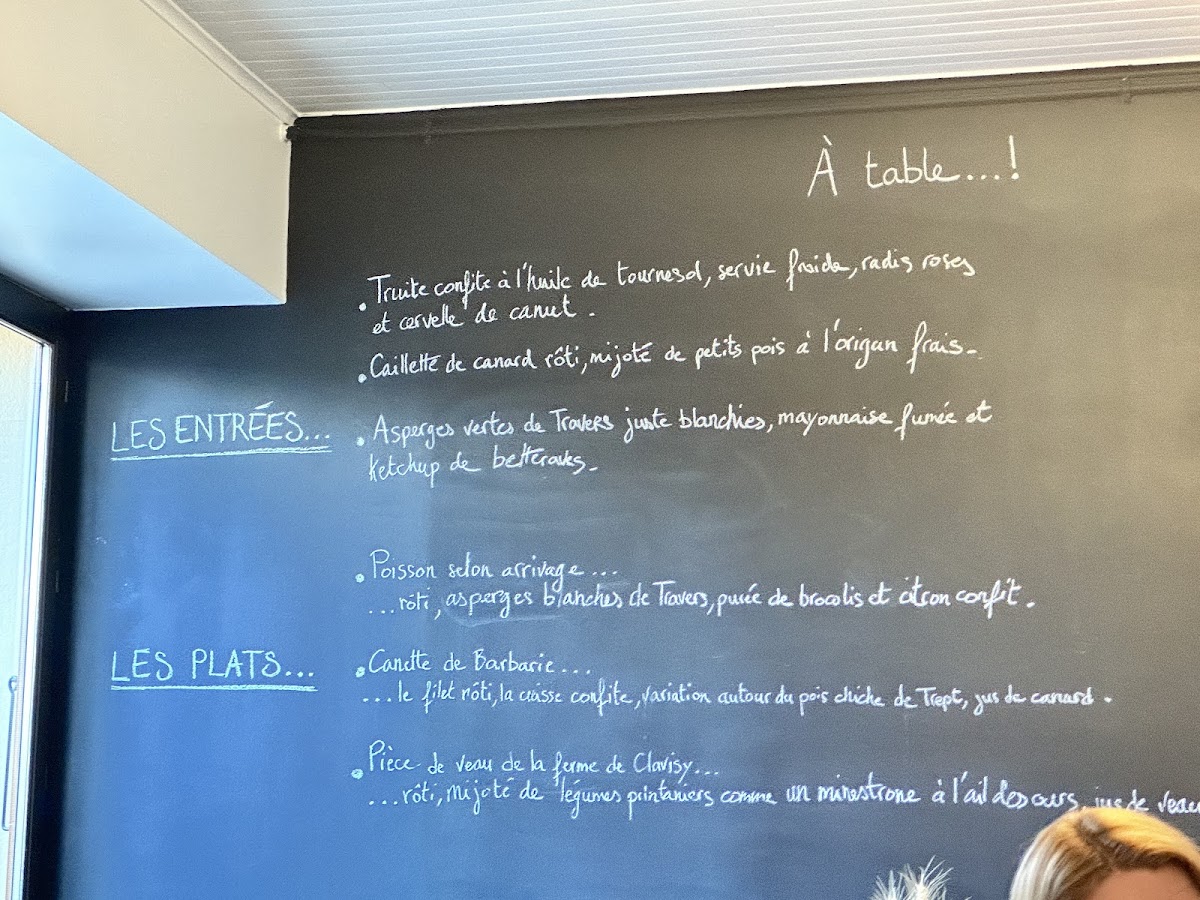 À table...!
• Truite confite à l'huile de tournesol, servie froide, radis roses
et cervelle de canut.
• Caillette de canard rôti, mijoté de petits pois à l'origan frais.
LES ENTRÉES...
• Asperges vertes de Travers juste blanchies, mayonnaise fumée et
ketchup de betteraves.
• Poisson selon arrivage...
...rôti, asperges blanches de Travers, purée de brocolis et citron confit.
LES PLATS...
• Canette de Barbarie...
...le filet rôti, la cuisse confite, variation autour du pois chiche de Trept, jus de canard.
• Pièce de veau de la ferme de Clavisy...
...rôti, mijoté de légumes printaniers comme un minestrone à l'ail des ours, jus de veau